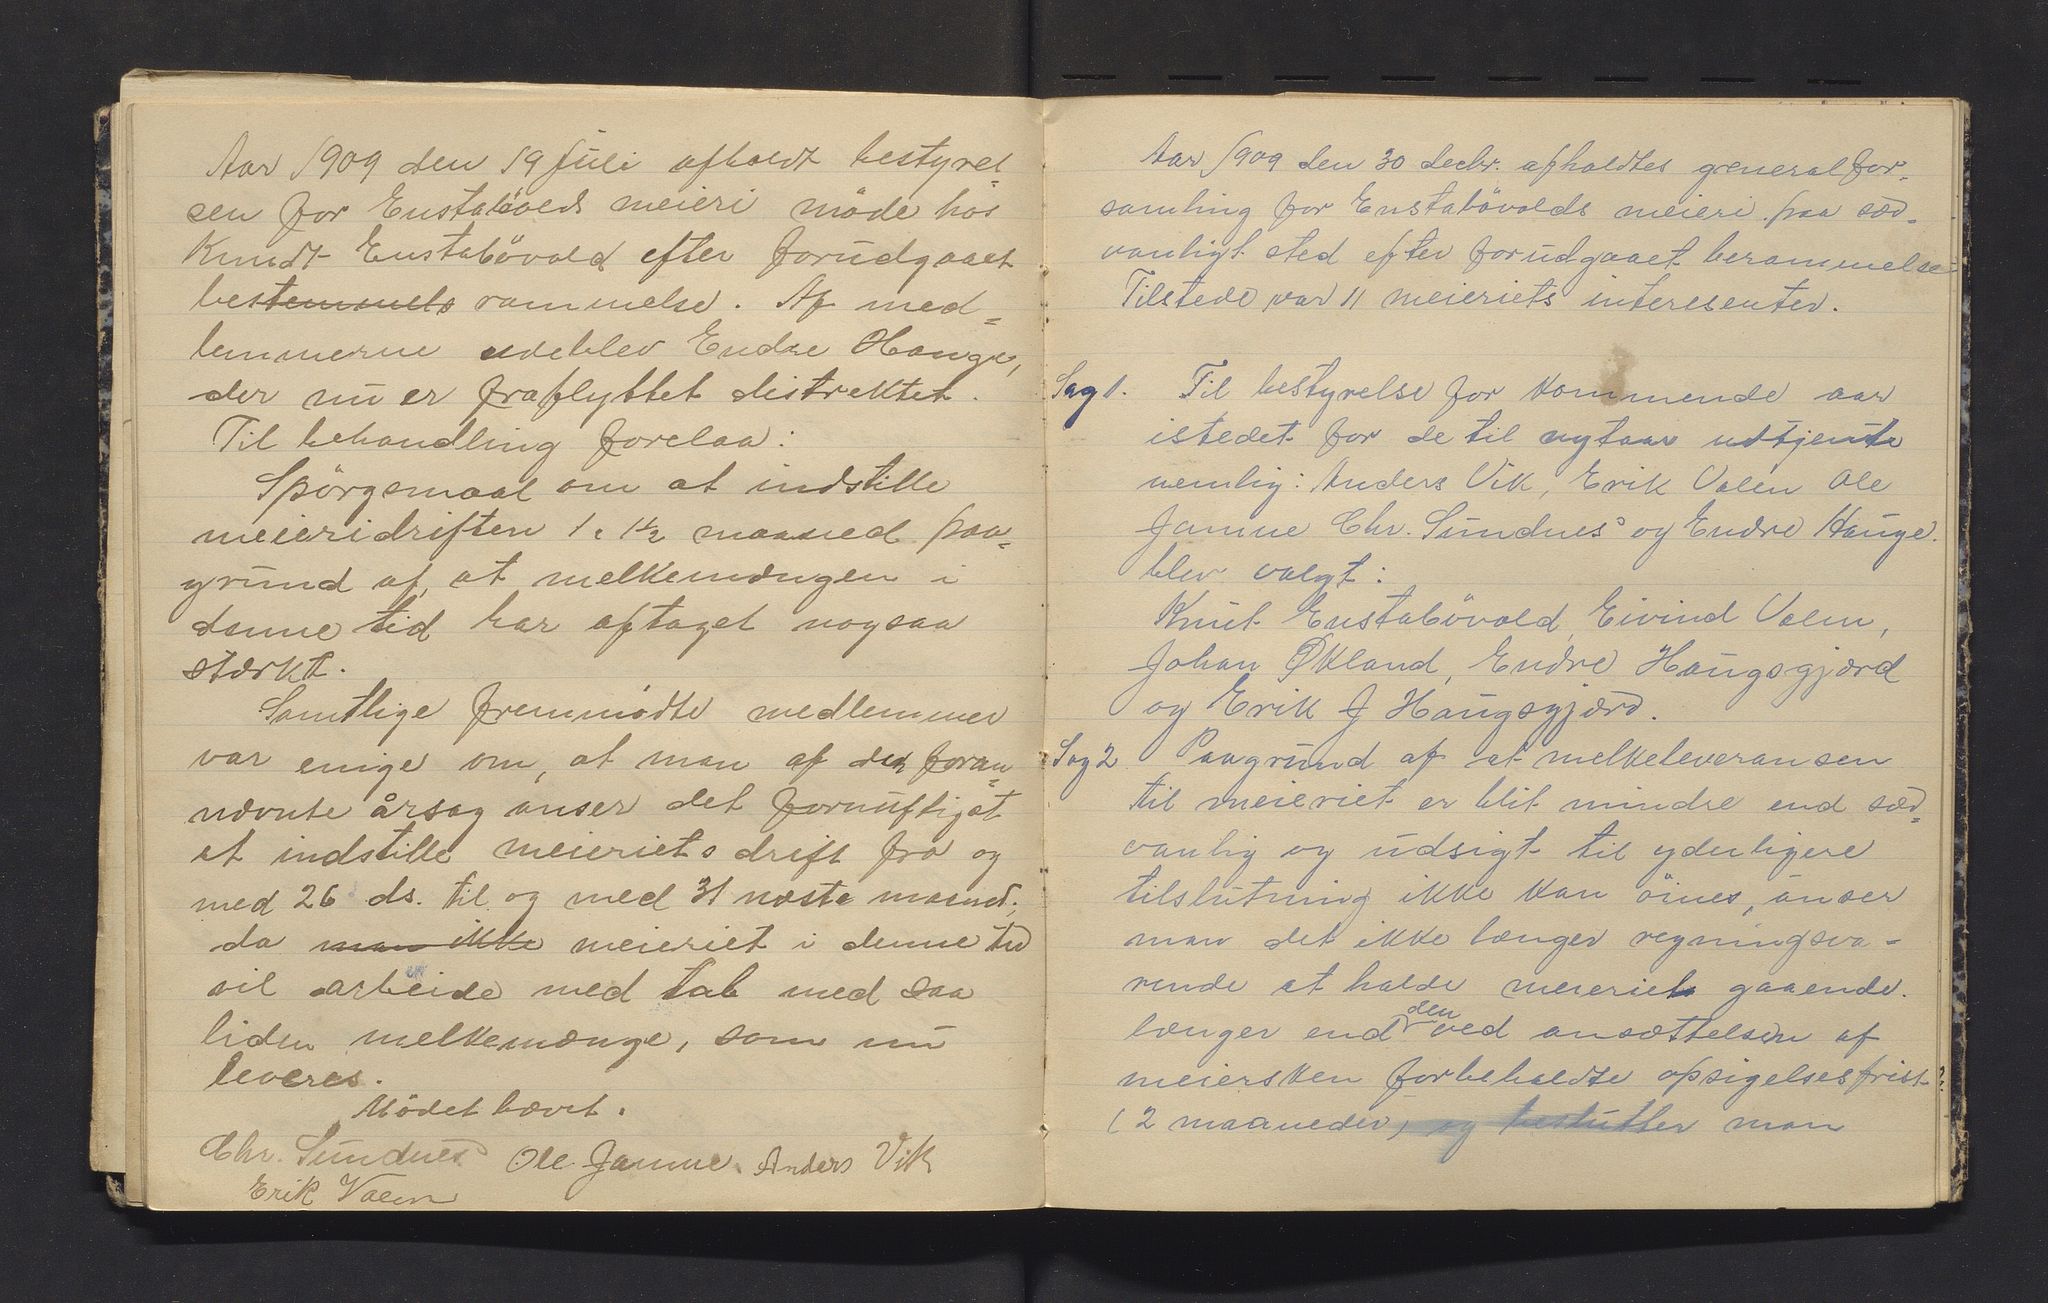 Aar 1909 den 19 juli afholdt bestyrel=
sen for Eustabövolds meieri möde hos
Knudt Eustabövold efter forudgaaet
bestemmels rammelse. Af med=
lemmerne udeblev Endre Hauge,
der nu er fraflyttet distrektet.
Til behandling forelaa:
Spörgsmaal om at indstille
meieridriften 1 á 1½ maaned paa=
grund af, at melkemængen i
denne tid har aftaget nogsaa
stærkt.
Samtlige fremmödte medlemmer
var enige om, at man af den foran=
nævnte årsag anser det fornuftigst
at indstille meieriets drift fra og
med 26 ds. til og med 31 næste maaned,
da man ikke meieriet i denne tid
vil arbeide med tab med saa
liden melkemænge, som nu
leveres.
Mödet hævet.
Chr. Sundnes Ole Jamne. Anders Vik
Erik Valen
Aar 1909 den 30 decbr. afholdtes generalfor=
samling for Eustabövolds meieri paa sæd=
vanligt sted efter forudgaaet berammelse
Tilstede var 11 meieriets interesenter.
Sag 1. Til bestyrelse for kommende aar
istedet for de til nytaar udtjente
nemlig: Anders Vik, Erik Valen Ole
Jamne Chr. Sundnes og Endre Hauge.
blev valgt:
Knut Eustabövold, Eivind Valen,
Johan Økland, Endre Haugsgjærd
og Erik J Haugsgjærd.
Sag 2 Paagrund af at melkeleveransen
til meieriet er blit mindre end sæd=
vanlig og udsigt til yderligere
tilslutning ikke kan öines, anser
man det ikke længer regningsva-
rende at holde meieriet gaaende.
længer end den ved ansættelsen af
meiersken forbeholdte opsigelsesfrist
(2 maaneder) og beslutter man